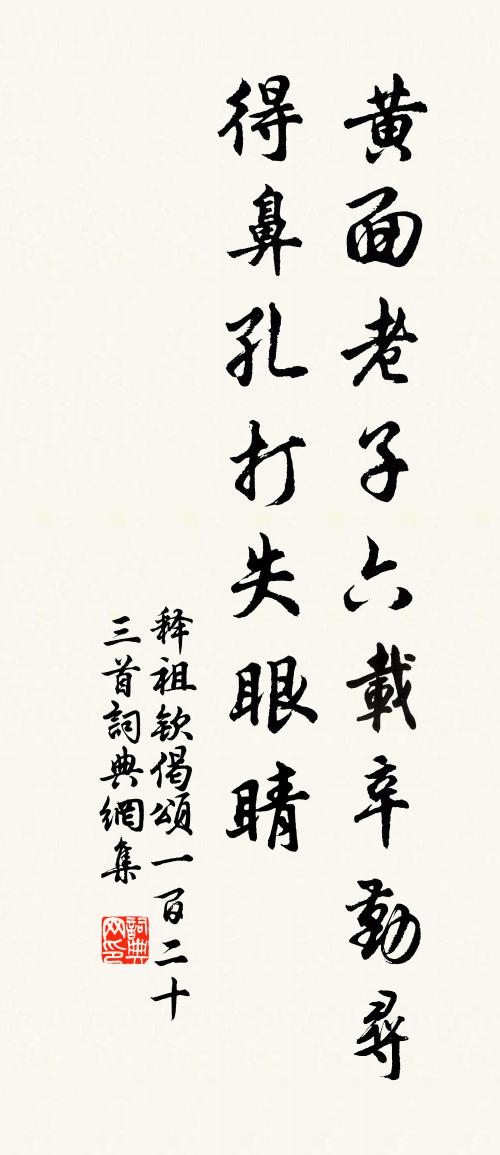 黃面老子六載辛勤尋
得鼻孔打失眼睛
释祖钦偈頌一百二十
三首詞典網集
詞典
网印